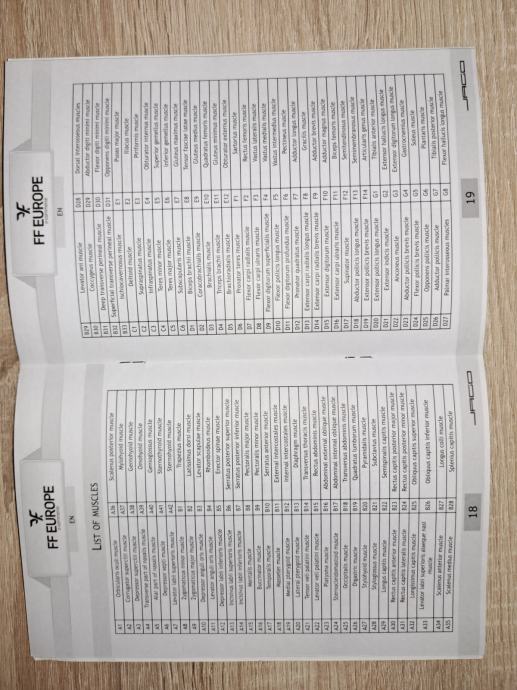 FF EUROPE
EN
LIST OF MUSCLES
A1 Orbicularis oculi muscle A36 Scalenus posterior muscle
A2 Corrugator supercilii muscle A37 Mylohyoid muscle
A3 Depressor supercilii muscle A38 Geniohyoid muscle
A4 Transverse part of nasalis muscle A39 Omohyoid muscle
A5 Alar part of nasalis muscle A40 Genioglossus muscle
A6 Depressor septi muscle A41 Sternothyroid muscle
A7 Levator labii superioris muscle A42 Sternohyoid muscle
A8 Zygomaticus minor muscle B1 Trapezius muscle
A9 Zygomaticus major muscle B2 Latissimus dorsi muscle
A10 Depressor anguli oris muscle B3 Levator scapulae muscle
A11 Risorius muscle B4 Rhomboideus muscle
A12 Depressor labii inferioris muscle B5 Erector spinae muscle
A13 Incisivus labii superioris muscle B6 Serratus posterior superior muscle
A14 Incisivus labii inferioris muscle B7 Serratus posterior inferior muscle
A15 Mentalis muscle B8 Pectoralis major muscle
A16 Buccinator muscle B9 Pectoralis minor muscle
A17 Temporalis muscle B10 Serratus anterior muscle
A18 Masseter muscle B11 External intercostales muscle
A19 Medial pterygoid muscle B12 Internal intercostales muscle
A20 Lateral pterygoid muscle B13 Diaphragm muscle
A21 Tensor veli palatini muscle B14 Transversus thoracis muscle
A22 Levator veli palatini muscle B15 Rectus abdominis muscle
A23 Platysma muscle B16 Abdominal external oblique muscle
A24 Sternocleidomastoid muscle B17 Abdominal internal oblique muscle
A25 Occipitalis muscle B18 Transversus abdominis muscle
A26 Digastric muscle B19 Quadratus lumborum muscle
A27 Stylohyoid muscle B20 Pyramidalis muscle
A28 Styloglossus muscle B21 Subclavius muscle
A29 Longus capitis muscle B22 Semispinalis capitis muscle
A30 Rectus capitis anterior muscle B23 Rectus capitis posterior major muscle
A31 Rectus capitis lateralis muscle B24 Rectus capitis posterior minor muscle
A32 Longissimus capitis muscle B25 Obliquus capitis superior muscle
A33 Levator labii superioris alaeque nasi muscle B26 Obliquus capitis inferior muscle
A34 Scalenus anterior muscle B27 Longus colli muscle
A35 Scalenus medius muscle B28 Splenius capitis muscle
18
JAGO
FF EUROPE
EN
B29 Levator ani muscle D28 Dorsal interosseous muscles
B30 Coccygeus muscle D29 Abductor digiti minimi muscle
B31 Deep transverse perineal muscle D30 Flexor digiti minimi muscle
B32 Superficial transverse perineal muscle D31 Opponens digiti minimi muscle
B33 Ischiocavernosus muscle E1 Psoas major muscle
C1 Deltoid muscle E2 Iliacus muscle
C2 Supraspinatus muscle E3 Piriformis muscle
C3 Infraspinatus muscle E4 Obturator internus muscle
C4 Teres minor muscle E5 Superior gemellus muscle
C5 Teres major muscle E6 Inferior gemellus muscle
C6 Subscapularis muscle E7 Gluteus maximus muscle
D1 Biceps brachii muscle E8 Tensor fasciae latae muscle
D2 Coracobrachialis muscle E9 Gluteus medius muscle
D3 Brachialis muscle E10 Quadratus femoris muscle
D4 Triceps brachii muscle E11 Gluteus minimus muscle
D5 Brachioradialis muscle E12 Obturator externus muscle
D6 Pronator teres muscle F1 Sartorius muscle
D7 Flexor carpi radialis muscle F2 Rectus femoris muscle
D8 Flexor carpi ulnaris muscle F3 Vastus lateralis muscle
D9 Flexor digitorum superficialis muscle F4 Vastus medialis muscle
D10 Flexor pollicis longus muscle F5 Vastus intermedius muscle
D11 Flexor digitorum profundus muscle F6 Pectineus muscle
D12 Pronator quadratus muscle F7 Adductor longus muscle
D13 Extensor carpi radialis longus muscle F8 Gracilis muscle
D14 Extensor carpi radialis brevis muscle F9 Adductor brevis muscle
D15 Extensor digitorum muscle F10 Adductor magnus muscle
D16 Extensor carpi ulnaris muscle F11 Biceps femoris muscle
D17 Supinator muscle F12 Semitendinosus muscle
D18 Abductor pollicis longus muscle F13 Semimembranosus muscle
D19 Extensor pollicis brevis muscle F14 Articularis genus muscle
D20 Extensor pollicis longus muscle G1 Tibialis anterior muscle
D21 Extensor indicis muscle G2 Extensor hallucis longus muscle
D22 Anconeus muscle G3 Extensor digitorum longus muscle
D23 Abductor pollicis brevis muscle G4 Gastrocnemius muscle
D24 Flexor pollicis brevis muscle G5 Soleus muscle
D25 Opponens pollicis muscle G6 Plantaris muscle
D26 Adductor pollicis muscle G7 Tibialis posterior muscle
D27 Palmar interosseous muscles G8 Flexor hallucis longus muscle
19
JAGO